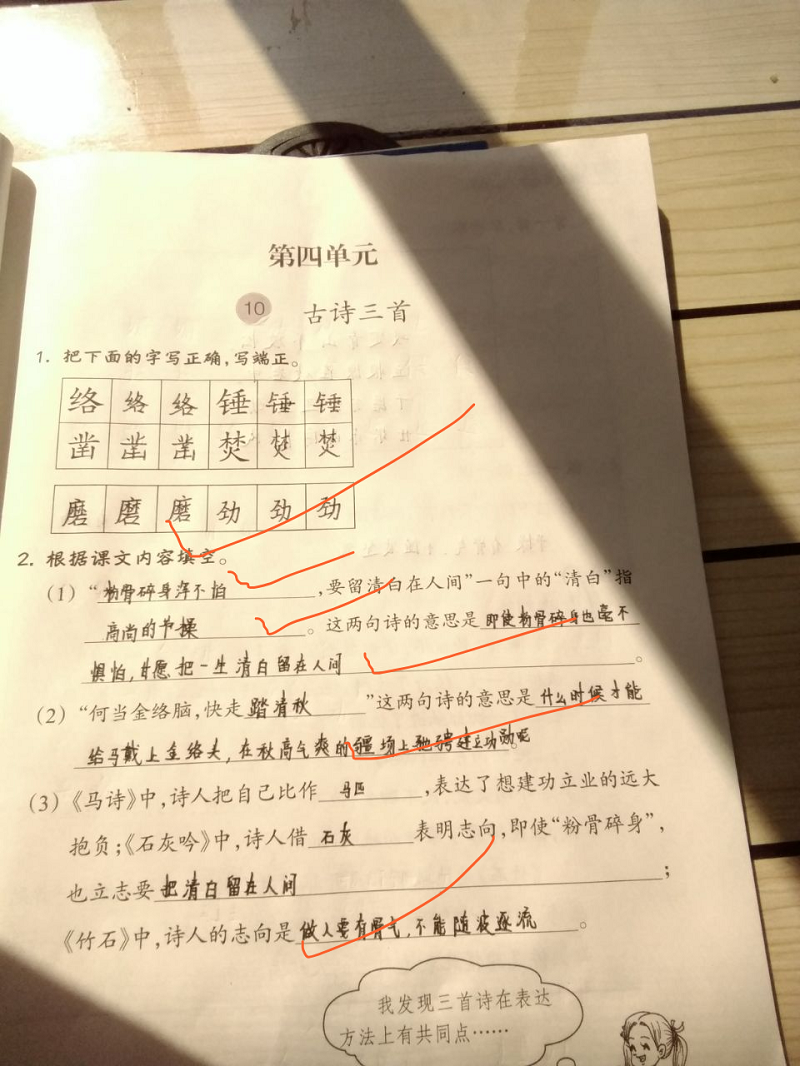 第四单元
10 古诗三首
1. 把下面的字写正确,写端正。
络 络 络 锤 锤 锤
凿 凿 凿 焚 焚 焚
磨 磨 磨 劲 劲 劲
2. 根据课文内容填空。
(1)“粉骨碎身浑不怕,要留清白在人间”一句中的“清白”指
高尚的节操。这两句诗的意思是即使粉骨碎身也毫不
惧怕,甘愿把一生清白留在人间。
(2)“何当金络脑,快走踏清秋”这两句诗的意思是什么时候才能
给马戴上金络头,在秋高气爽的疆场上驰骋建立功勋呢。
(3)《马诗》中,诗人把自己比作马匹,表达了想建功立业的远大
抱负;《石灰吟》中,诗人借石灰表明志向,即使“粉骨碎身”,
也立志要把清白留在人间;
《竹石》中,诗人的志向是做人要有骨气,不能随波逐流。
我发现三首诗在表达
方法上有共同点……